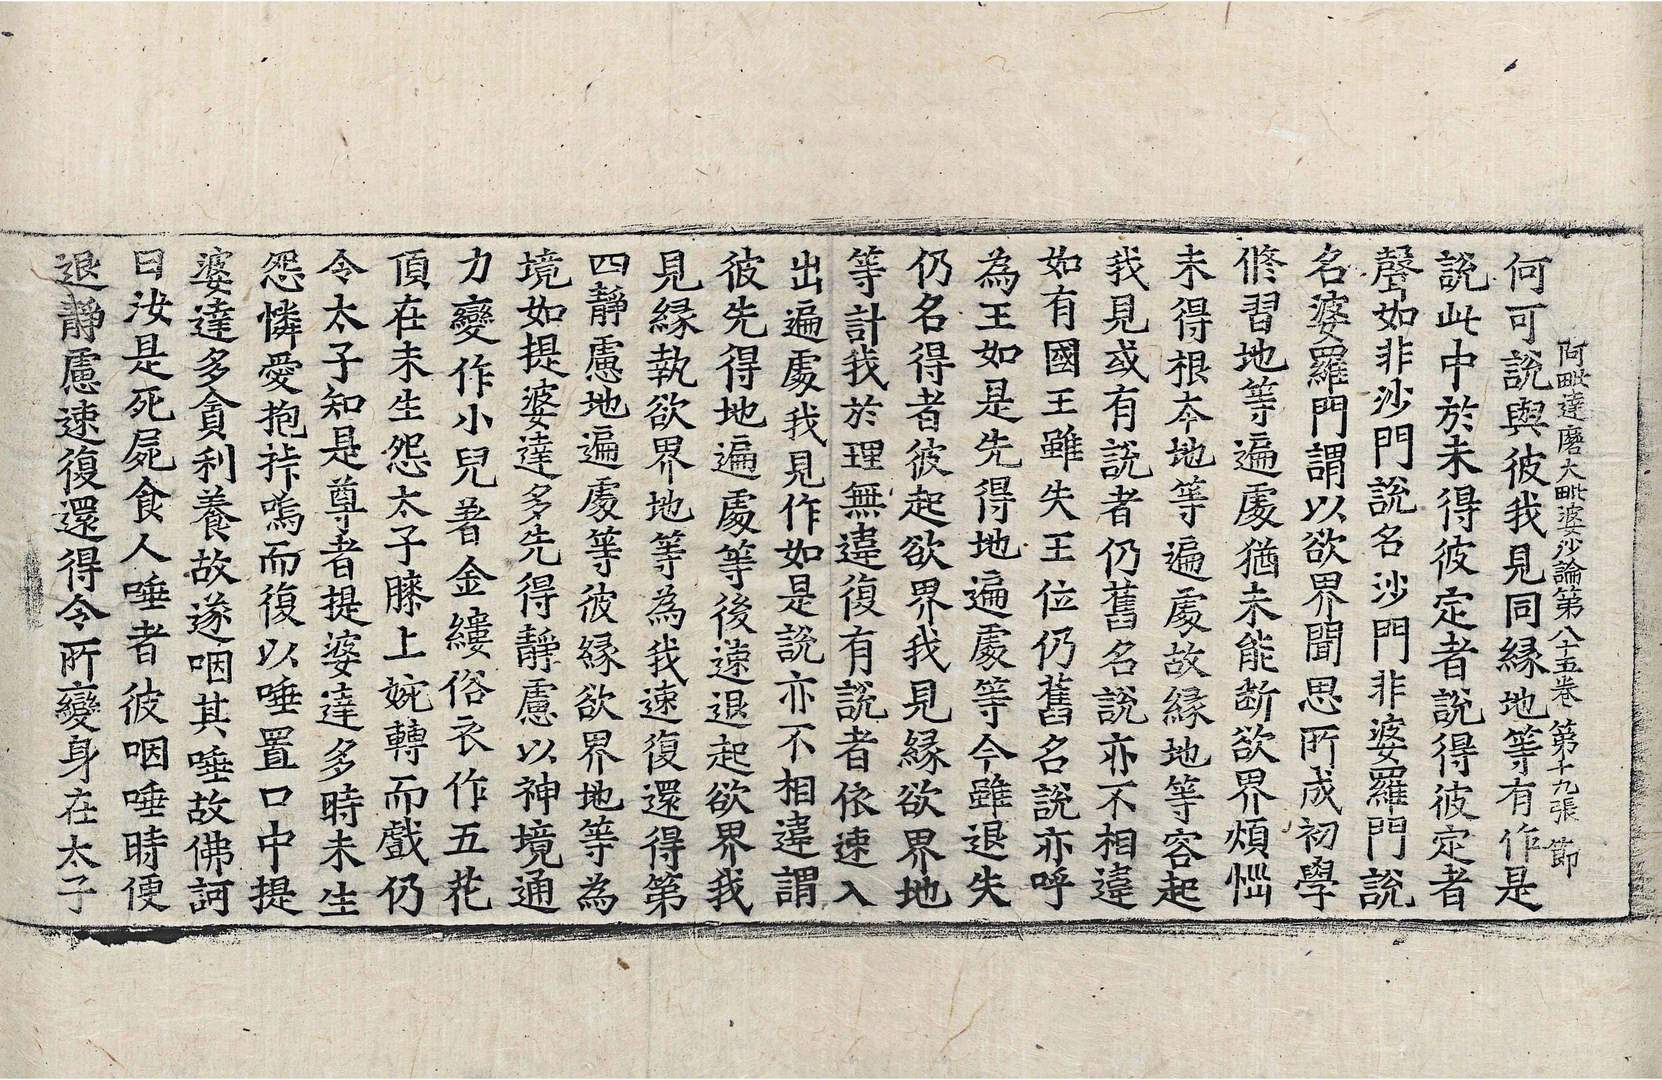 阿毗達磨大毗婆沙論第八十五卷 第十九張 節
何可說與彼我見同緣地等有作是
說此中於未得彼定者說得彼定者
聲如非沙門說名沙門非婆羅門說
名婆羅門謂以欲界聞思所成初學
修習地等遍處猶未能斷欲界煩惱
未得根本地等遍處故緣地等容起
我見或有說者仍舊名說亦不相違
如有國王雖失王位仍舊名說亦呼
為王如是先得地遍處等今雖退失
仍名得者彼起欲界我見緣欲界地
等計我於理無違復有說者依速入
出遍處我見作如是說亦不相違謂
彼先得地遍處等後速退起欲界我
見緣執欲界地等為我速復還得第
四靜慮地遍處等彼緣欲界地等為
境如提婆達多先得靜慮以神境通
力變作小兒著金縷俗衣作五花
頂在未生怨太子膝上婉轉而戲仍
令太子知是尊者提婆達多時未生
怨憐愛抱𢱢嗚而復以唾置口中提
婆達多貪利養故遂咽其唾故佛訶
曰汝是死屍食人唾者彼咽唾時便
退靜慮速復還得令所變身在太子